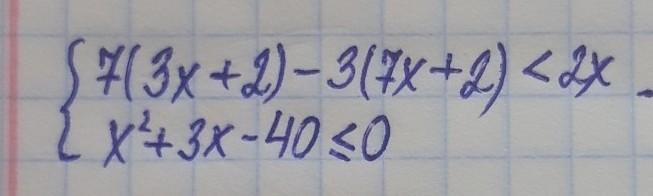 { 7(3x+2)-3(7x+2)<2x .
x²+3x-40≤0